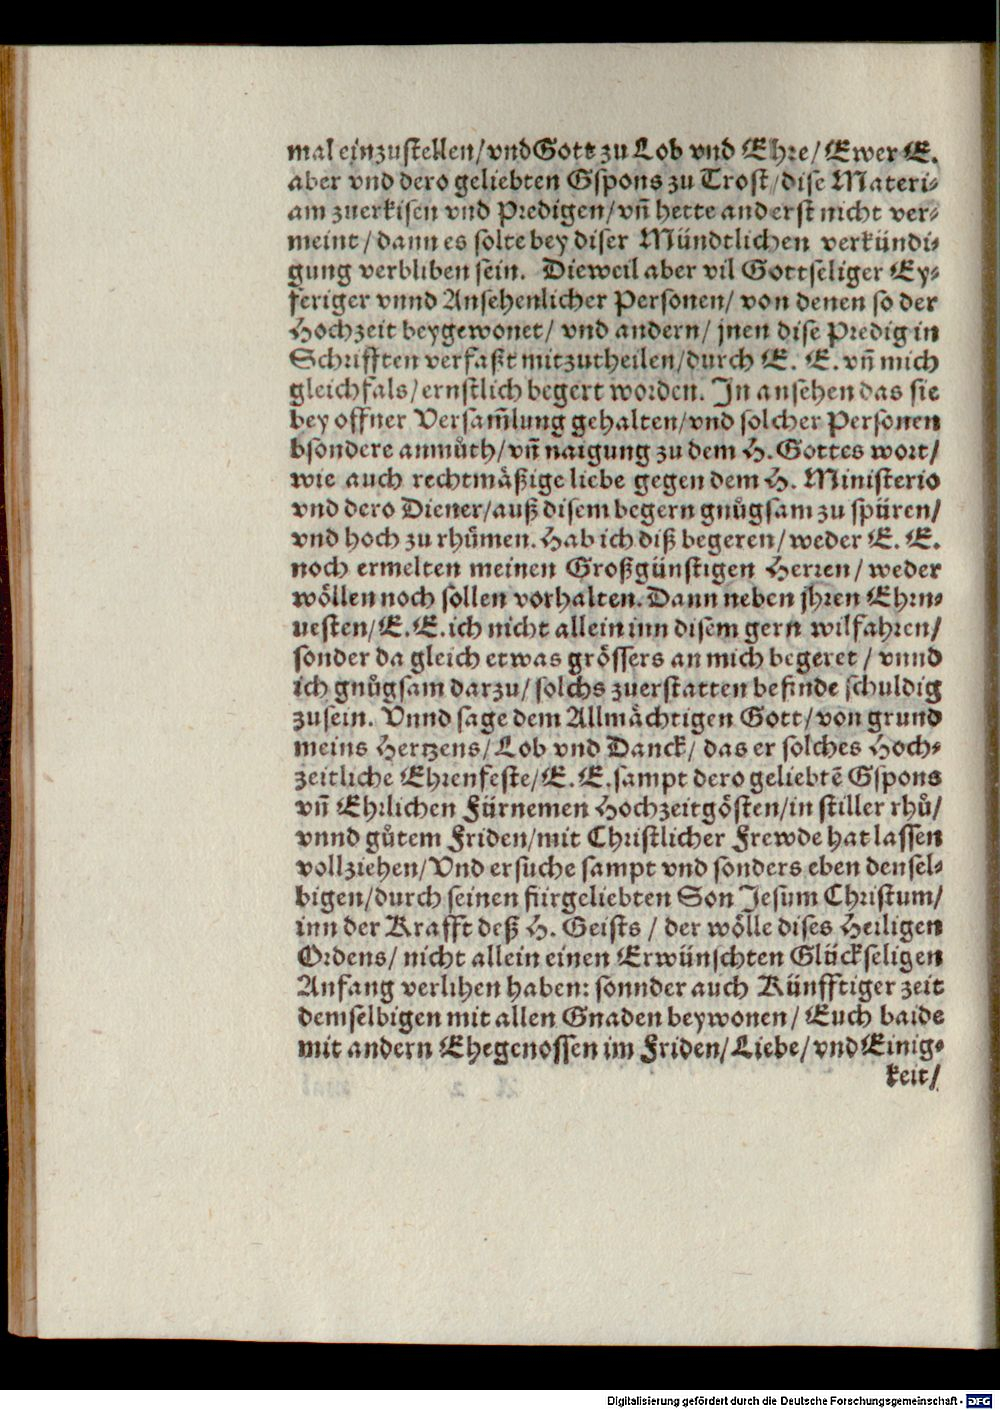 mal einzustellen/ vnd Gott zu Lob vnd Ehre/ Ewer E.
aber vnd dero geliebten Gspons zu Trost/ dise Materi⸗
am zuerkisen vnd Predigen/ vñ hette anderst nicht ver⸗
meint/ dann es solte bey diser Mündtlichen verkündi⸗
gung verbliben sein. Dieweil aber vil Gottseliger Ey⸗
feriger vnnd Ansehenlicher Personen/ von denen so der
Hochzeit beygewonet/ vnd andern/ jnen dise Predig in
Schrifften verfaßt mitzutheilen/ durch E. E. vñ mich
gleichfals/ ernstlich begert worden. In ansehen das sie
bey offner Versam̃lung gehalten/ vnd solcher Personen
bsondere anmůth/ vñ naigung zu dem H. Gottes wort/
wie auch rechtmäßige liebe gegen dem H. Ministerio
vnd dero Diener/ auß disem begern gnůgsam zu spüren/
vnd hoch zu rhůmen. Hab ich diß begeren/ weder E. E.
noch ermelten meinen Großgünstigen Herren/ weder
wöllen noch sollen vorhalten. Dann neben jhren Ehrn⸗
uesten/ E. E. ich nicht allein inn disem gern wilfahren/
sonder da gleich etwas grössers an mich begeret/ vnnd
ich gnůgsam darzu/ solchs zuerstatten befinde schuldig
zusein. Vnnd sage dem Allmächtigen Gott/ von grund
meins Hertzens/ Lob vnd Danck/ das er solches Hoch⸗
zeitliche Ehrenfeste/ E. E. sampt dero geliebtẽ Gspons
vñ Ehrlichen Fürnemen Hochzeitgösten/ in stiller rhů/
vnnd gůtem Friden/ mit Christlicher Frewde hat lassen
vollziehen/ Vnd ersuche sampt vnd sonders eben densel⸗
bigen/ durch seinen fürgeliebten Son Jesum Christum/
inn der Krafft deß H. Geists/ der wölle dises Heiligen
Ordens/ nicht allein einen Erwünschten Glückseligen
Anfang verlihen haben: sonnder auch Künfftiger zeit
demselbigen mit allen Gnaden beywonen/ Euch baide
mit andern Ehegenossen im Friden/ Liebe/ vnd Einig⸗
keit/
Digitalisierung gefördert durch die Deutsche Forschungsgemeinschaft - DFG